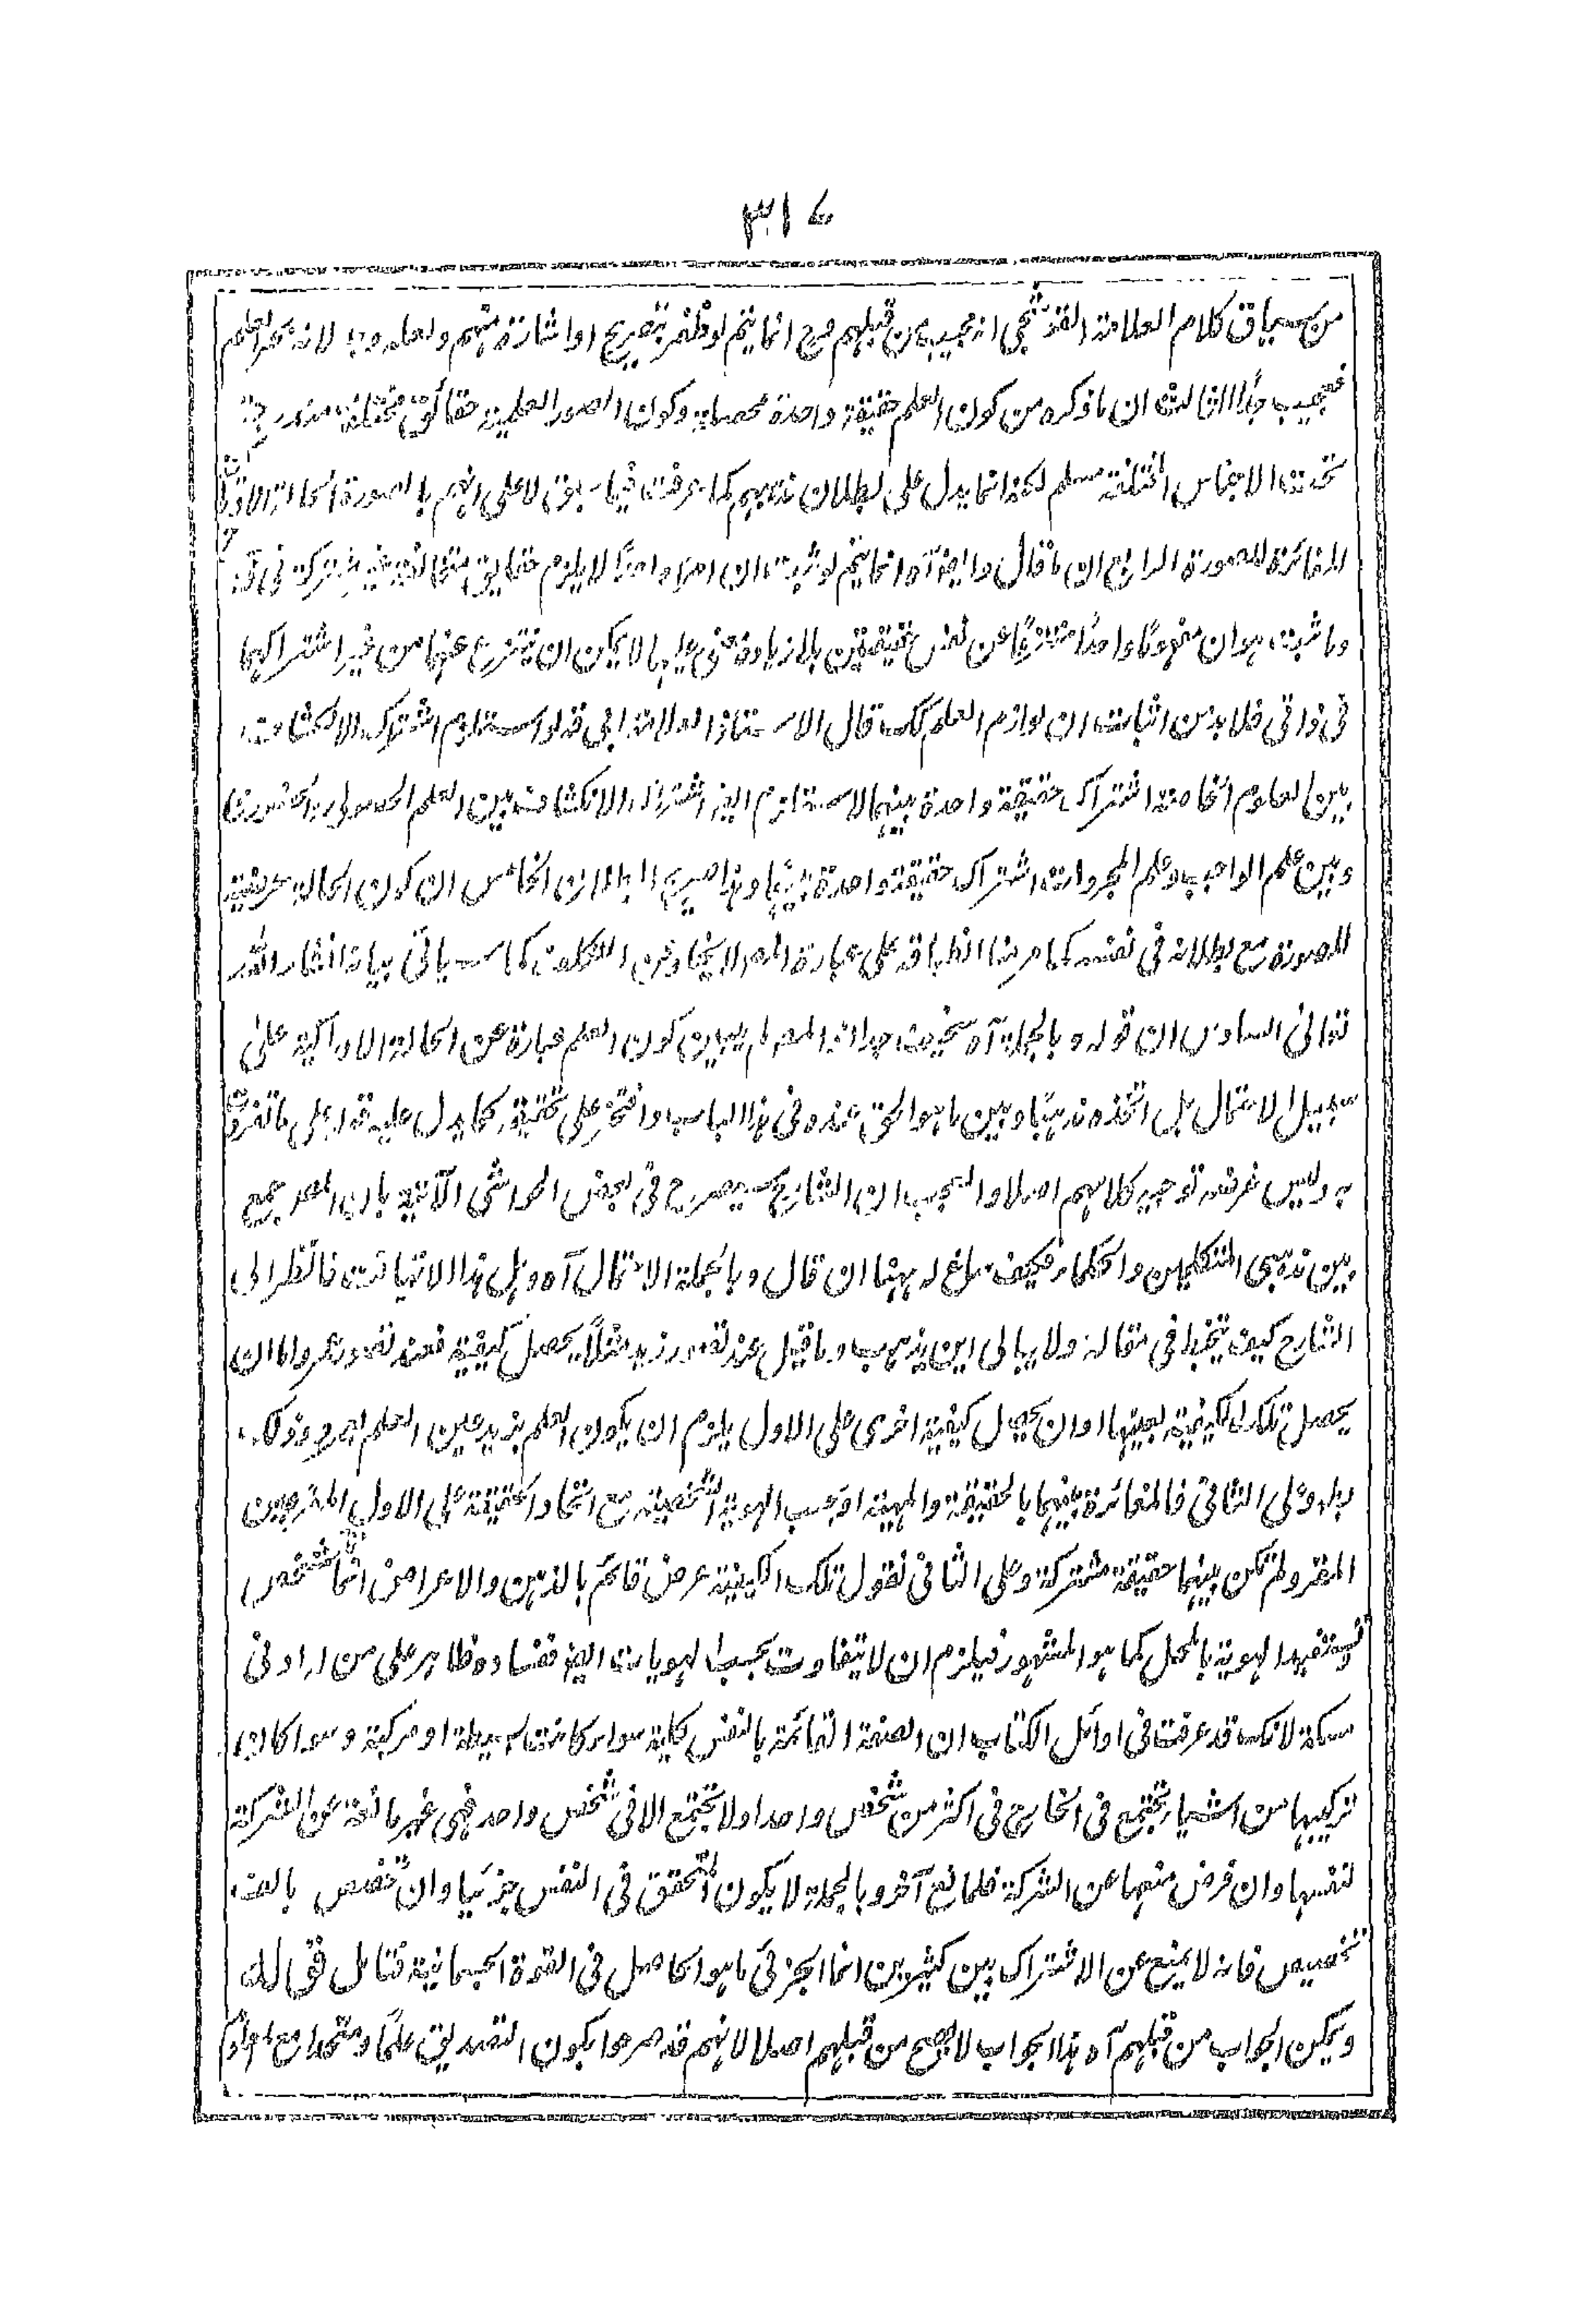 ٣١٦
من سياق كلام العلامة القوشجي انه مجيب من قبلهم فرح انما يتم لو ظفر بتصريح او اشارة منهم ولعله لانه
فعجيب جدًا الثالث ان ما ذكره من كون العلم حقيقة واحدة محصلة وكون الصور العلمية حقائق مختلفة مندرجة
تحت الاجناس المختلفة مسلم لكنه انما يدل على بطلان مذهبهم كما عرفت فيما سبق لا على انهم بالصورة الحالة الادراكية
المغائرة للصورة الرابع ان ما قال وايضا آه انما يتم لو ثبت ان امرا واحدًا لا يلزم حقايق متخالفة غير مشتركة في
وما ثبت هو ان مفهومًا واحدًا منتزعًا عن نفس حقيقتين بلا زيادة معنى عليها لا يمكن ان ينتزع عنهما من غير اشتراكهما
في ذاتي فلا بد من اثبات ان لوازم العلم كك قال الاستاذ العلامة ابي قد لو استلزم اشتراك الانكشاف
بين العلوم الخاصة اشتراك حقيقة واحدة بينهما لاستلزم ايضا اشتراك الانكشاف بين العلم الحصولي والحضوري
وبين علم الواجب وعلم المجردات اشتراك حقيقة واحدة بينها وهذا صريح البطلان الخامس ان كون الحالة عرضية
للصورة مع بطلانه في نفسه كما مر منا انطباقه على عبارة المص لا يخلو عن التكلف كما سيأتي بيانه انشاء الله
تعالى السادس ان قوله وبالجملة آه سخيف جدا لان المص لم يبين كون العلم عبارة عن الحالة الادراكية على
سبيل الاحتمال بل اتخذه مذهبًا وبين ما هو الحق عنده في هذا الباب وافتخر على تحقيقه كما يدل عليه قوله على ما تفردت
به وليس غرضه توجيه كلامهم اصلا والعجب ان الشارح سيصرح في بعض الحواشي الآتية بان المص جمع
بين مذهبي المتكلمين والحكماء فكيف ساغ له ههنا ان قال وبالجملة الاحتمال آه وهل هذا الا تهافت فانظر الى
الشارح كيف يتخبط في مقاله ولا يبالي اين يذهب وما قيل عند تصور زيد مثلًا يحصل كيفية فعند تصور عمرو اما ان
يحصل تلك الكيفية بعينها او ان يحصل كيفية اخرى على الاول يلزم ان يكون العلم بزيد عين العلم بعمرو وذلك
بط وعلى الثاني فالمغائرة بينهما بالحقيقة والمهية او بحسب الهوية الشخصية مع اتحاد الحقيقة على الاول
المفر ولم تكن بينهما حقيقة مشتركة وعلى الثاني نقول تلك الكيفية عرض قائم بالذهن والاعراض انما تتشخص
وتستفيد الهوية بالمحل كما هو المشهور فيلزم ان لا يتفاوت بحسب الهويات ايضا ففساده ظاهر على من له ادنى
مسكة لانك قد عرفت في اوائل الكتاب ان الصفة القائمة بالنفس كلية سواء كانت بسيطة او مركبة وسواء كان
تركيبها من اشياء تجتمع في الخارج في اكثر من شخص واحد او لا تجتمع الا في شخص واحد فهي غير مانعة عن الشركة
لنفسها وان فرض منعها عن الشركة فلمانع آخر وبالجملة لا يكون المتحقق في النفس جزئيا وان تخصص بالف
تخصيص فانه لا يمنع عن الاشتراك بين كثيرين انما الجزئي ما هو الحاصل في القوة الجسمانية فتأمل قوله
ويمكن الجواب من قبلهم آه هذا الجواب لا يصح من قبلهم اصلا لانهم قد صرحوا بكون التصديق علمًا ومتحدا مع